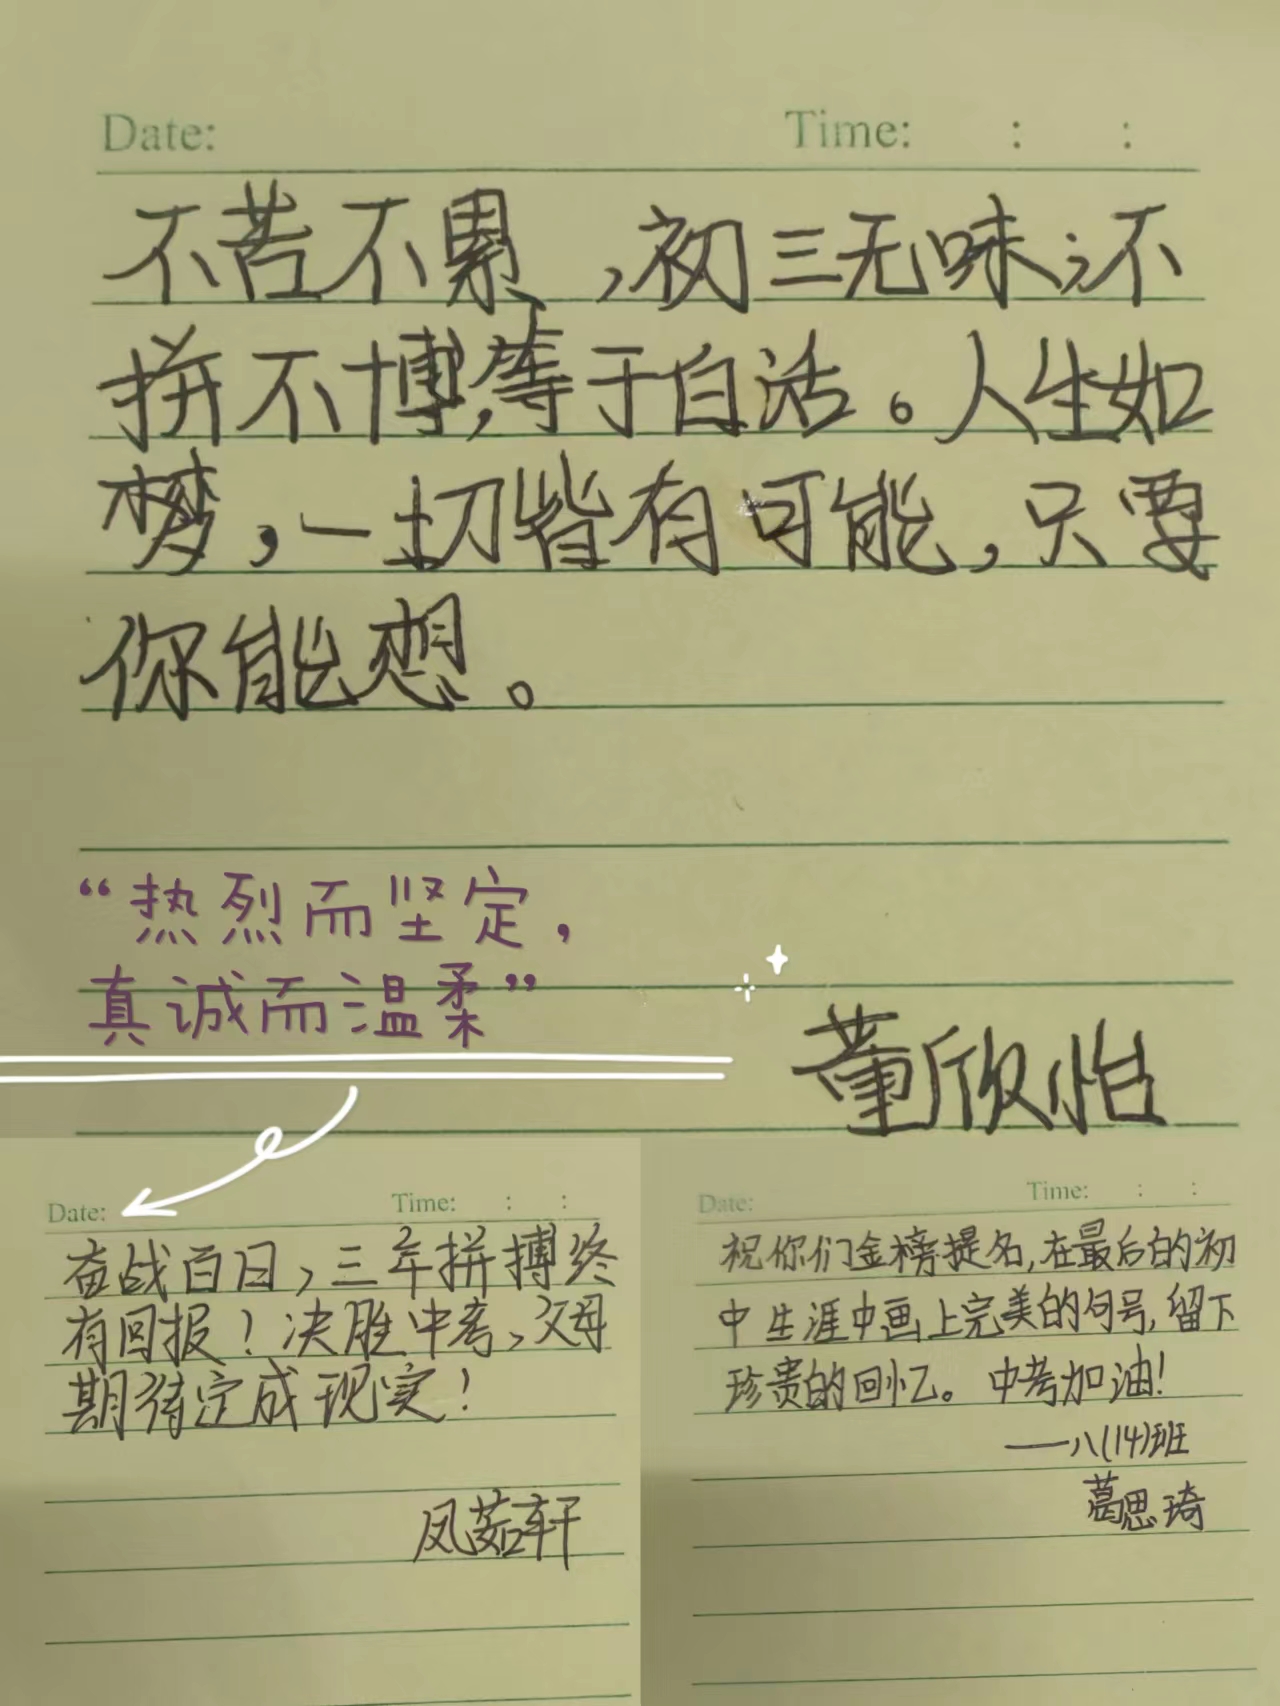 Date: Time: : :
不苦不累，初三无味；不
拼不博，等于白活。人生如
梦，一切皆有可能，只要
你能想。
“热烈而坚定，
真诚而温柔”
董欣怡
Date: Time: : :
奋战百日，三年拼搏终
有回报！决胜中考，父母
期待定成现实！
凤茹轩
Date: Time: : :
祝你们金榜提名，在最后的初
中生涯中画上完美的句号，留下
珍贵的回忆。中考加油！
——八(14)班
葛思琦